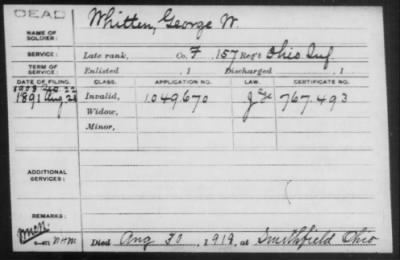 DEAD
Whitten, George W.
NAME OF SOLDIER:
SERVICE: Late rank, Co. F 157 Reg't Ohio Inf.
TERM OF SERVICE: Enlisted , 1 Discharged , 1
DATE OF FILING. CLASS. APPLICATION NO. LAW. CERTIFICATE NO.
1891 Aug Invalid, 1.049.670 767.493
Widow,
Minor,
ADDITIONAL SERVICES:
REMARKS:
Died Aug 30, 1919, at Smithfield Ohio